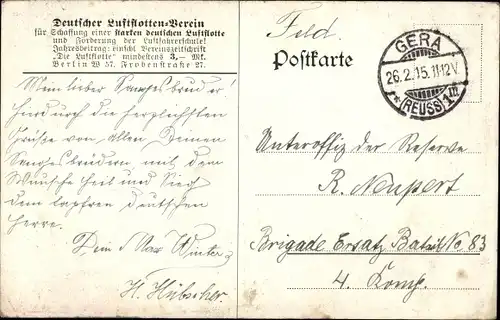 Deutscher Luftflotten-Verein
für Schaffung einer starken deutschen Luftflotte
und Förderung der Luftfahrerschule!
Jahresbeitrag: einschl. Vereinszeitschrift
"Die Luftflotte" mindestens 3,— Mk.
Berlin W 57, Frobenstraße 27.
Mein lieber Sangesbruder!
Hierdurch die herzlichsten
Grüße von allen Deinen
Sangesbrüdern mit dem
Wunsche Heil und Sieg
dem tapferen deutschen
Heere.
Dein Max Winter
H. Hübscher
Feld.
Postkarte
GERA
26.2.15.11-12V.
*(REUSS)1m
Unteroffiz der Reserve
R. Neupert
Brigade Ersatz Batail No 83
4. Komp.